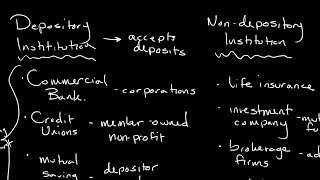 Depository
Institution → accepts
deposits
Non-depository
Institution
• Commercial
Bank. - corporations
• Credit
Unions - member-owned
non-profit
• mutual
saving - depositor
• life insurance
• investment
company -
• brokerage
firms -